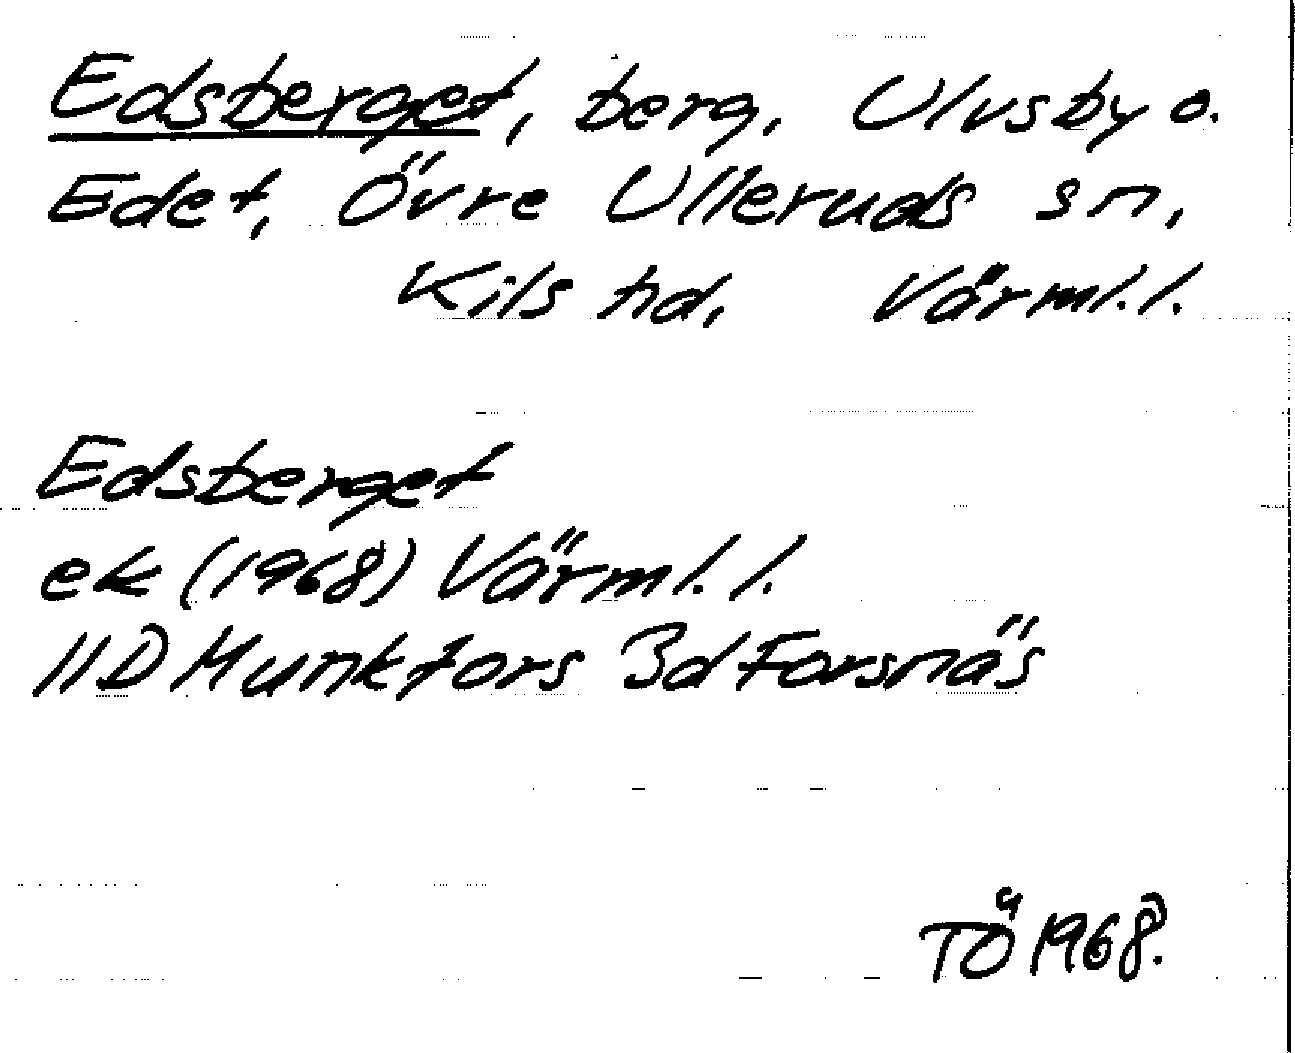 Edsberget, berg, Ulvsby o.
Edet, Övre Ulleruds sn,
Kils hd, Värml. l.
Edsberget
ek (1968) Värml. l.
11D Munkfors 3d Forsnäs
TÖ 1968.